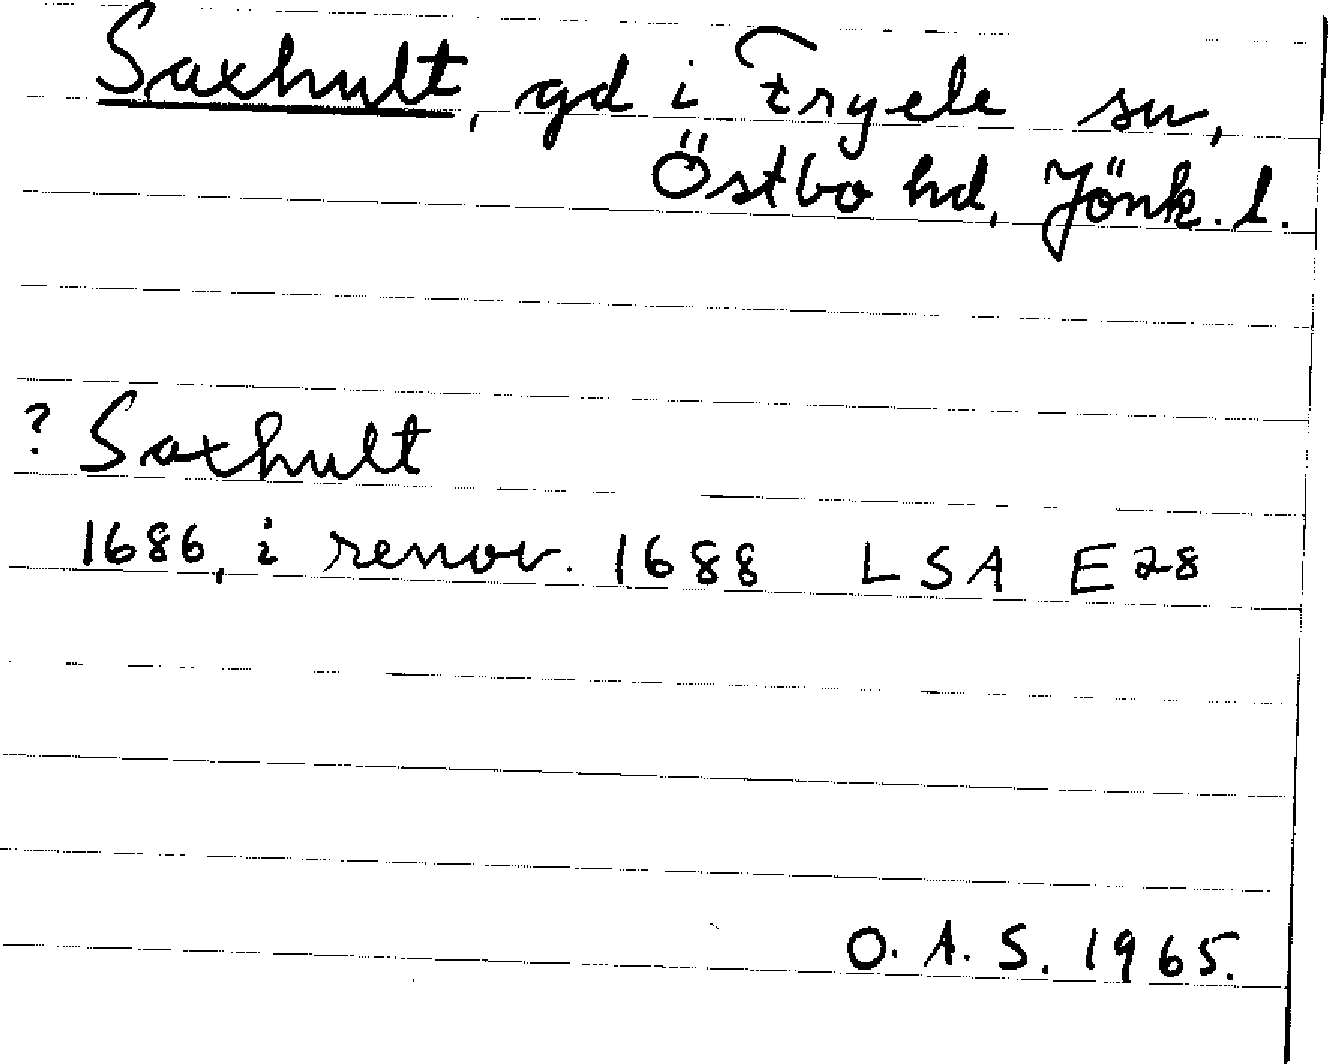 Saxhult, gd i Fryele sn,
Östbo hd, Jönk. l.
? Saxhult
1686, i renov. 1688 LSA E28
O. A. S. 1965.